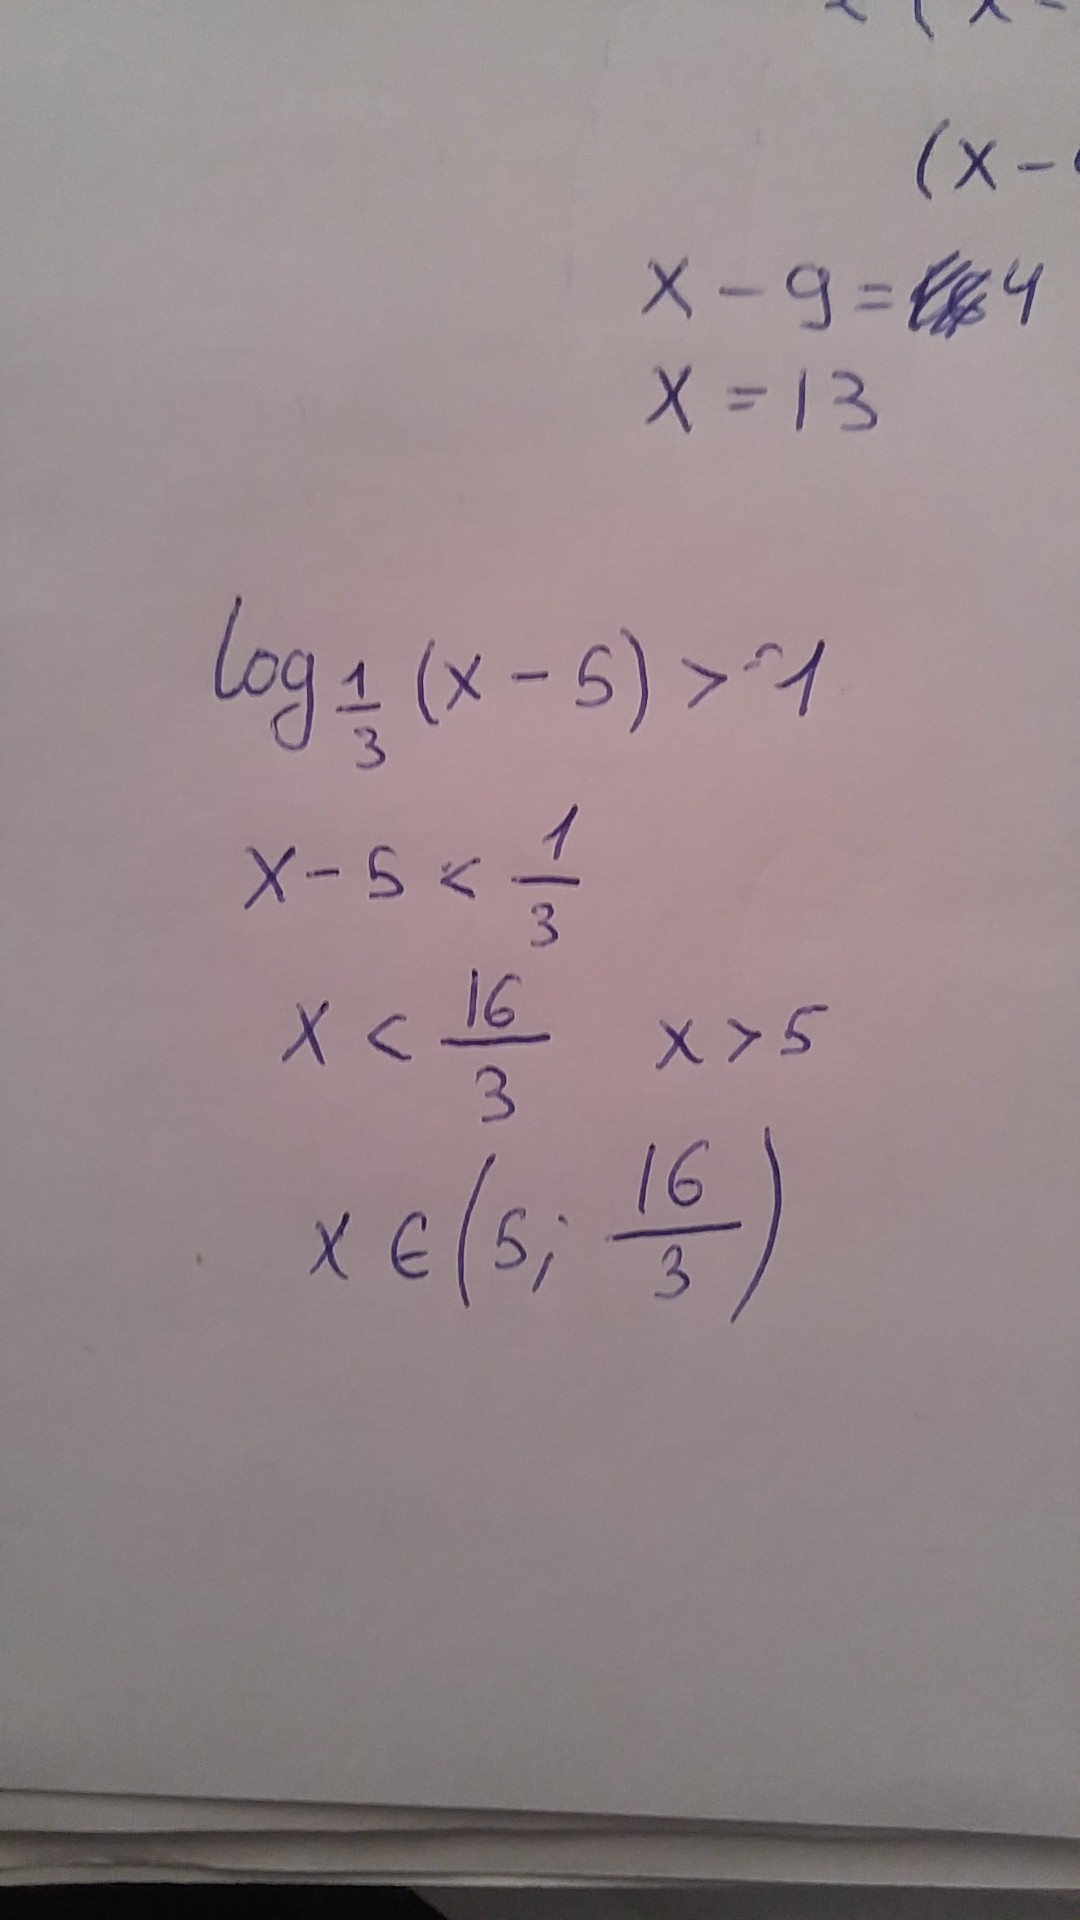 (x -
x - 9 = 4
x = 13
log 1/3 (x - 5) > -1
x - 5 < 1/3
x < 16/3 x > 5
x ∈ (5; 16/3)